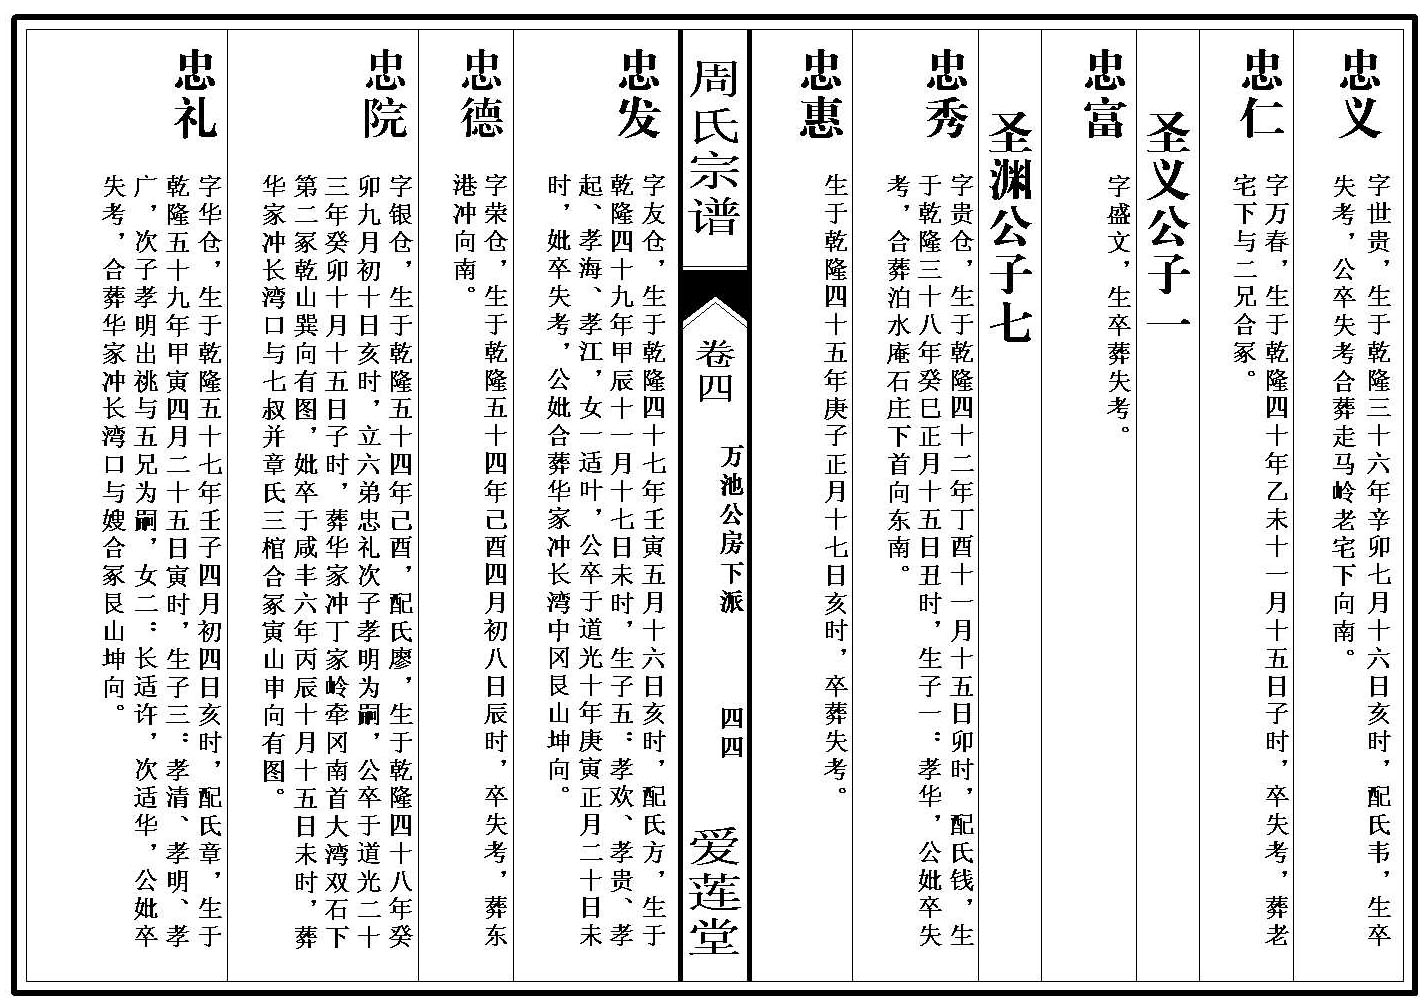 忠义
字世贵，生于乾隆三十六年辛卯七月十六日亥时，配氏韦，生卒
失考，公卒失考合葬走马岭老宅下向南。
忠仁
字万春，生于乾隆四十年乙未十一月十五日子时，卒失考，葬老
宅下与二兄合冢。
圣义公子一
忠富
字盛文，生卒葬失考。
圣渊公子七
忠秀
字贵仓，生于乾隆四十二年丁酉十一月十五日卯时，配氏钱，生
于乾隆三十八年癸巳正月十五日丑时，生子一：孝华，公妣卒失
考，合葬泊水庵石庄下首向东南。
忠惠
生于乾隆四十五年庚子正月十七日亥时，卒葬失考。
周氏宗谱
卷四
万池公房下派
四四
爱莲堂
忠发
字友仓，生于乾隆四十七年壬寅五月十六日亥时，配氏方，生于
乾隆四十九年甲辰十一月十七日未时，生子五：孝欢、孝贵、孝
起、孝海、孝江，女一适叶，公卒于道光十年庚寅正月二十日未
时，妣卒失考，公妣合葬华家冲长湾中冈艮山坤向。
忠德
字荣仓，生于乾隆五十四年己酉四月初八日辰时，卒失考，葬东
港冲向南。
忠院
字银仓，生于乾隆五十四年己酉，配氏廖，生于乾隆四十八年癸
卯九月初十日亥时，立六弟忠礼次子孝明为嗣，公卒于道光二十
三年癸卯十月十五日子时，葬华家冲丁家岭牵冈南首大湾双石下
第二冢乾山巽向有图，妣卒于咸丰六年丙辰十月十五日未时，葬
华家冲长湾口与七叔并章氏三棺合冢寅山申向有图。
忠礼
字华仓，生于乾隆五十七年壬子四月初四日亥时，配氏章，生于
乾隆五十九年甲寅四月二十五日寅时，生子三：孝清、孝明、孝
广，次子孝明出祧与五兄为嗣，女二：长适许，次适华，公妣卒
失考，合葬华家冲长湾口与嫂合冢艮山坤向。